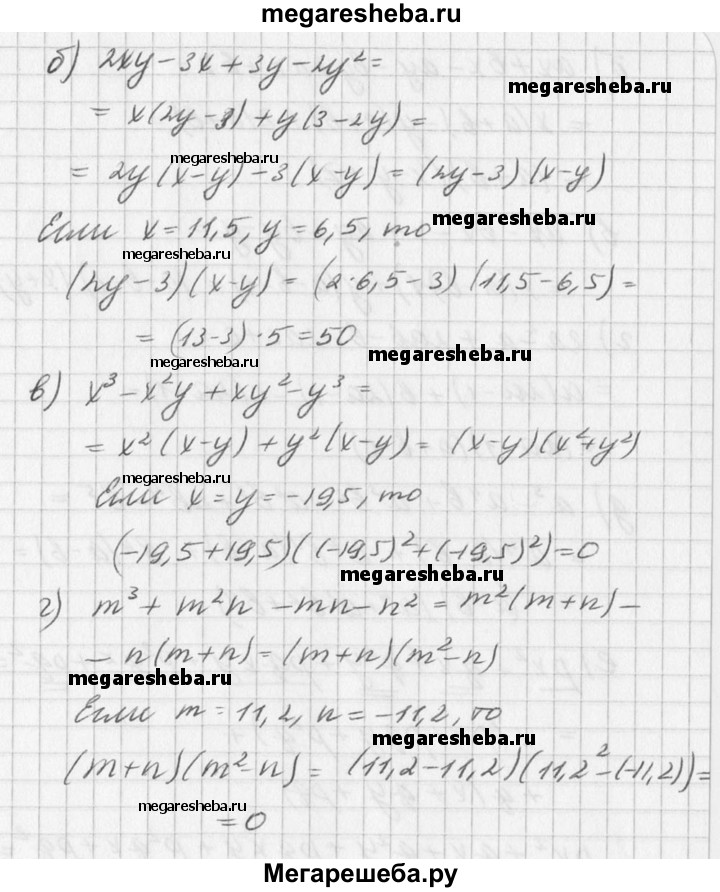 megaresheba.ru
б) 2xy-3x+3y-2y²=
megaresheba.ru
= x(2y-3)+y(3-2y)=
megaresheba.ru
= 2y(x-y)-3(x-y)=(2y-3)(x-y)
Если x=11,5, y=6,5, то
megaresheba.ru
megaresheba.ru
(2y-3)(x-y)=(2·6,5-3)(11,5-6,5)=
=(13-3)·5=50
megaresheba.ru
megaresheba.ru
в) x³-x²y+xy²-y³=
= x²(x-y)+y²(x-y)=(x-y)(x²+y²)
megaresheba.ru
Если x=y=-19,5, то
(-19,5+19,5)((-19,5)²+(-19,5)²)=0
megaresheba.ru
г) m³+m²n-mn-n²=m²(m+n)-
- n(m+n)=(m+n)(m²-n)
megaresheba.ru
Если m=11,2, n=-11,2, то
megaresheba.ru
(m+n)(m²-n)=(11,2-11,2)(11,2²-(-11,2))=
megaresheba.ru
=0
Мегарешеба.ру